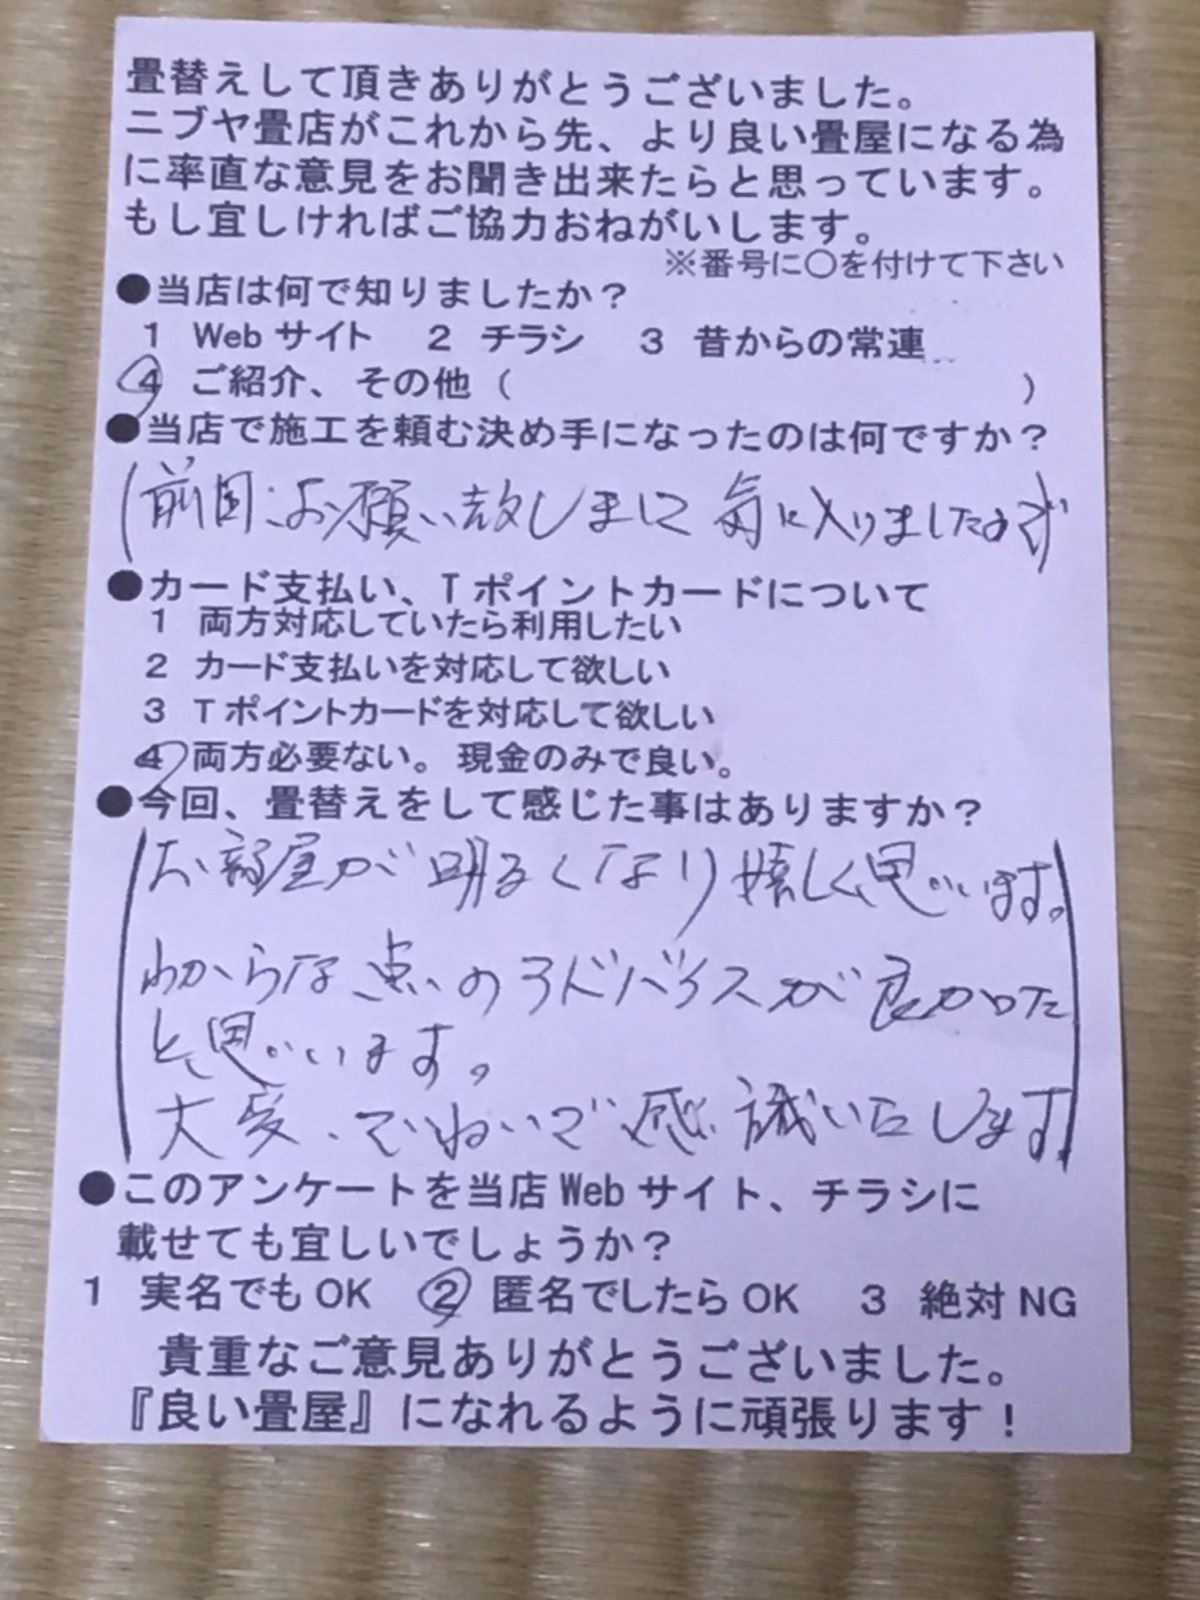 畳替えして頂きありがとうございました。
ニブヤ畳店がこれから先、より良い畳屋になる為
に率直な意見をお聞き出来たらと思っています。
もし宜しければご協力おねがいします。
※番号に〇を付けて下さい
●当店は何で知りましたか？
1 Webサイト 2 チラシ 3 昔からの常連
4 ご紹介、その他（ ）
●当店で施工を頼む決め手になったのは何ですか？
(前回、お願い致しまして気に入りましたので)
●カード支払い、Tポイントカードについて
1 両方対応していたら利用したい
2 カード支払いを対応して欲しい
3 Tポイントカードを対応して欲しい
4 両方必要ない。現金のみで良い。
●今回、畳替えをして感じた事はありますか？
お部屋が明るくなり嬉しく思います。
わからな点のアドバイスが良かった
と思います。
大変、ていねいで感謝いたします
●このアンケートを当店Webサイト、チラシに
載せても宜しいでしょうか？
1 実名でもOK 2 匿名でしたらOK 3 絶対NG
貴重なご意見ありがとうございました。
『良い畳屋』になれるように頑張ります！